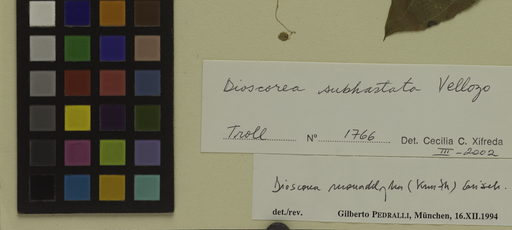 Dioscorea subhastata Vellozo
Troll Nº 1766 Det. Cecilia C. Xifreda
III-2002
Dioscorea monadelpha (Kunth) Griseb.
det./rev. Gilberto PEDRALLI, München, 16.XII.1994